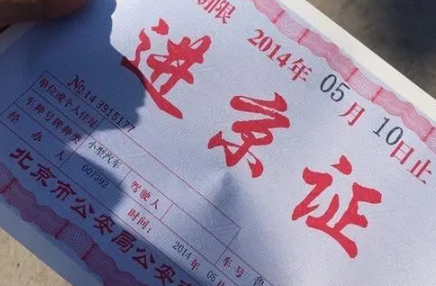 期限 2014年 05月 10日止
进京证
No 14 3915177
单位或个人住址
车牌号牌种类 小型汽车
经办人 007392 驾驶人
时间: 2014年 05 车号 鲁
北京市公安局公安